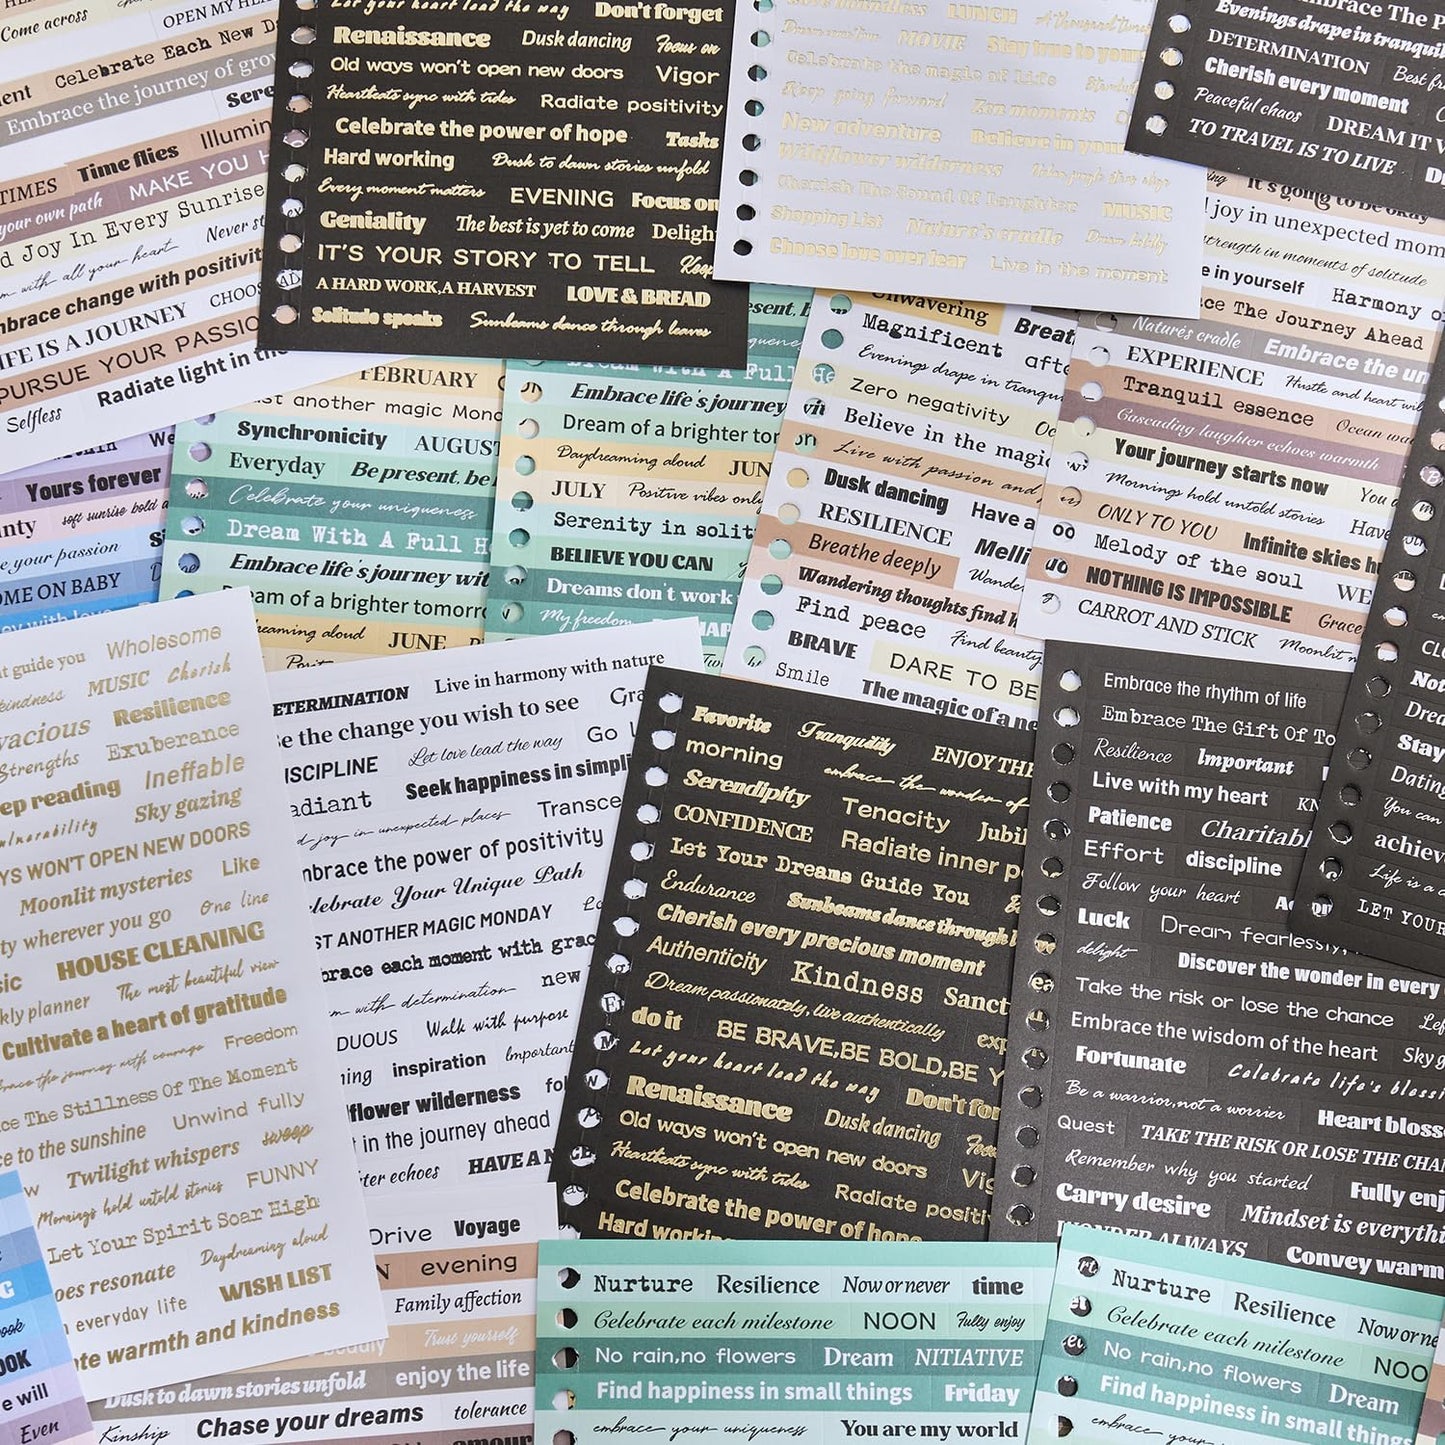 Come across
OPEN MY HEA
Celebrate Each New Da
Embrace the journey of grow
Sere
TIMES Time flies Illumin
your own path MAKE YOU H
d Joy In Every Sunrise
with all your heart Never st
mbrace change with positivit
IFE IS A JOURNEY CHOOS
PURSUE YOUR PASSIO
Selfless Radiate light in the
Let your heart lead the way Don't forget
Renaissance Dusk dancing Focus on
Old ways won't open new doors Vigor
Heartbeats sync with tides Radiate positivity
Celebrate the power of hope Tasks
Hard working Dusk to dawn stories unfold
Every moment matters EVENING Focus on
Geniality The best is yet to come Deligh
IT'S YOUR STORY TO TELL Keep
A HARD WORK,A HARVEST LOVE & BREAD
Solitude speaks Sunbeams dance through leaves
LUNCH
MOVIE Stay true to your
Celebrate the magic of life
Keep going forward Zen moments
New adventure Believe in your
Wildflower wilderness
Cherish The Sound Of Laughter MUSIC
Shopping List Nature's cradle
Choose love over fear Live in the moment
Embrace The P
Evenings drape in tranquil
DETERMINATION Best fr
Cherish every moment
Peaceful chaos DREAM IT W
TO TRAVEL IS TO LIVE
It's going to be okay
joy in unexpected mom
strength in moments of solitude
e in yourself Harmony o
ce The Journey Ahead
Naturés cradle Embrace the un
EXPERIENCE Hustle and heart wil
Tranquil essence Ocean wa
Cascading laughter echoes warmth
Your journey starts now You a
Mornings hold untold stories Have
ONLY TO YOU Infinite skies hu
Melody of the soul WE
NOTHING IS IMPOSSIBLE Grace
CARROT AND STICK Moonlit m
Unwavering Breat
Magnificent afte
Evenings drape in tranqu
Zero negativity Oc
Believe in the magic
Live with passion and
Dusk dancing Have a
RESILIENCE Melli
Breathe deeply Wande
Wandering thoughts find h
Find peace Find beauty
BRAVE DARE TO BE
Smile The magic of a ne
FEBRUARY
st another magic Mond
Synchronicity AUGUST
Everyday Be present, be
Celebrate your uniqueness
Dream With A Full He
Embrace life's journey wit
Dream of a brighter tomorro
dreaming aloud JUNE
Dream With A Full He
Embrace life's journey wit
Dream of a brighter tor
Daydreaming aloud JUN
JULY Positive vibes only
Serenity in solit
BELIEVE YOU CAN
Dreams don't work
My freedom HAP
Yours forever
nty soft sunrise bold a
e your passion
OME ON BABY
ey with love
t guide you Wholesome
kindness MUSIC Cherish
vacious Resilience
Strengths Exuberance
ep reading Ineffable
ulnerability Sky gazing
YS WON'T OPEN NEW DOORS
Moonlit mysteries Like
ty wherever you go One line
sic HOUSE CLEANING
kly planner The most beautiful view
Cultivate a heart of gratitude
brace the journey with courage Freedom
ce The Stillness Of The Moment
ce to the sunshine Unwind fully
w Twilight whispers swoop
Mornings hold untold stories FUNNY
Let Your Spirit Soar High
oes resonate Daydreaming aloud
everyday life WISH LIST
ate warmth and kindness
ETERMINATION Live in harmony with nature
e the change you wish to see Gra
ISCIPLINE Let love lead the way Go
adiant Seek happiness in simpli
d joy in unexpected places Transce
mbrace the power of positivity
elebrate Your Unique Path
ST ANOTHER MAGIC MONDAY
brace each moment with grac
with determination new
DUOUS Walk with purpose
ning inspiration Important
flower wilderness fol
t in the journey ahead
ter echoes HAVE A NICE
Drive Voyage
evening
Family affection
Trust yourself
Dusk to dawn stories unfold enjoy the life
Kinship Chase your dreams tolerance
amour
OOK
e will
Even
Favorite Tranquility ENJOY THE
morning embrace the wonder of
Serendipity Tenacity Jubil
CONFIDENCE Radiate inner p
Let Your Dreams Guide You
Endurance Sunbeams dance through l
Cherish every precious moment
Authenticity Kindness Sanct
Dream passionately, live authentically
do it BE BRAVE,BE BOLD,BE Y
Let your heart lead the way
Renaissance Dusk dancing Don't for
Old ways won't open new doors
Heartbeats sync with tides Vig
Celebrate the power of hope Radiate positi
Hard working
Embrace the rhythm of life
Embrace The Gift Of To
Resilience Important
Live with my heart
Patience Charitabl
Effort discipline
Follow your heart
Luck Dream fearlessly
delight Discover the wonder in every
Take the risk or lose the chance
Embrace the wisdom of the heart Sky g
Fortunate Celebrate life's bless
Be a warrior,not a worrier Heart bloss
Quest TAKE THE RISK OR LOSE THE CHA
Remember why you started Fully enj
Carry desire Mindset is everythi
WONDER ALWAYS Convey warm
Not
Drea
Stay
Dating
You can
achiev
Life is a c
LET YOUR
Nurture Resilience Now or never time
Celebrate each milestone NOON Fully enjoy
No rain,no flowers Dream NITIATIVE
Find happiness in small things Friday
embrace your uniqueness You are my world
Nurture Resilience Now or ne
Celebrate each milestone NOO
No rain,no flowers Dream
Find happiness in small thing
embrace your